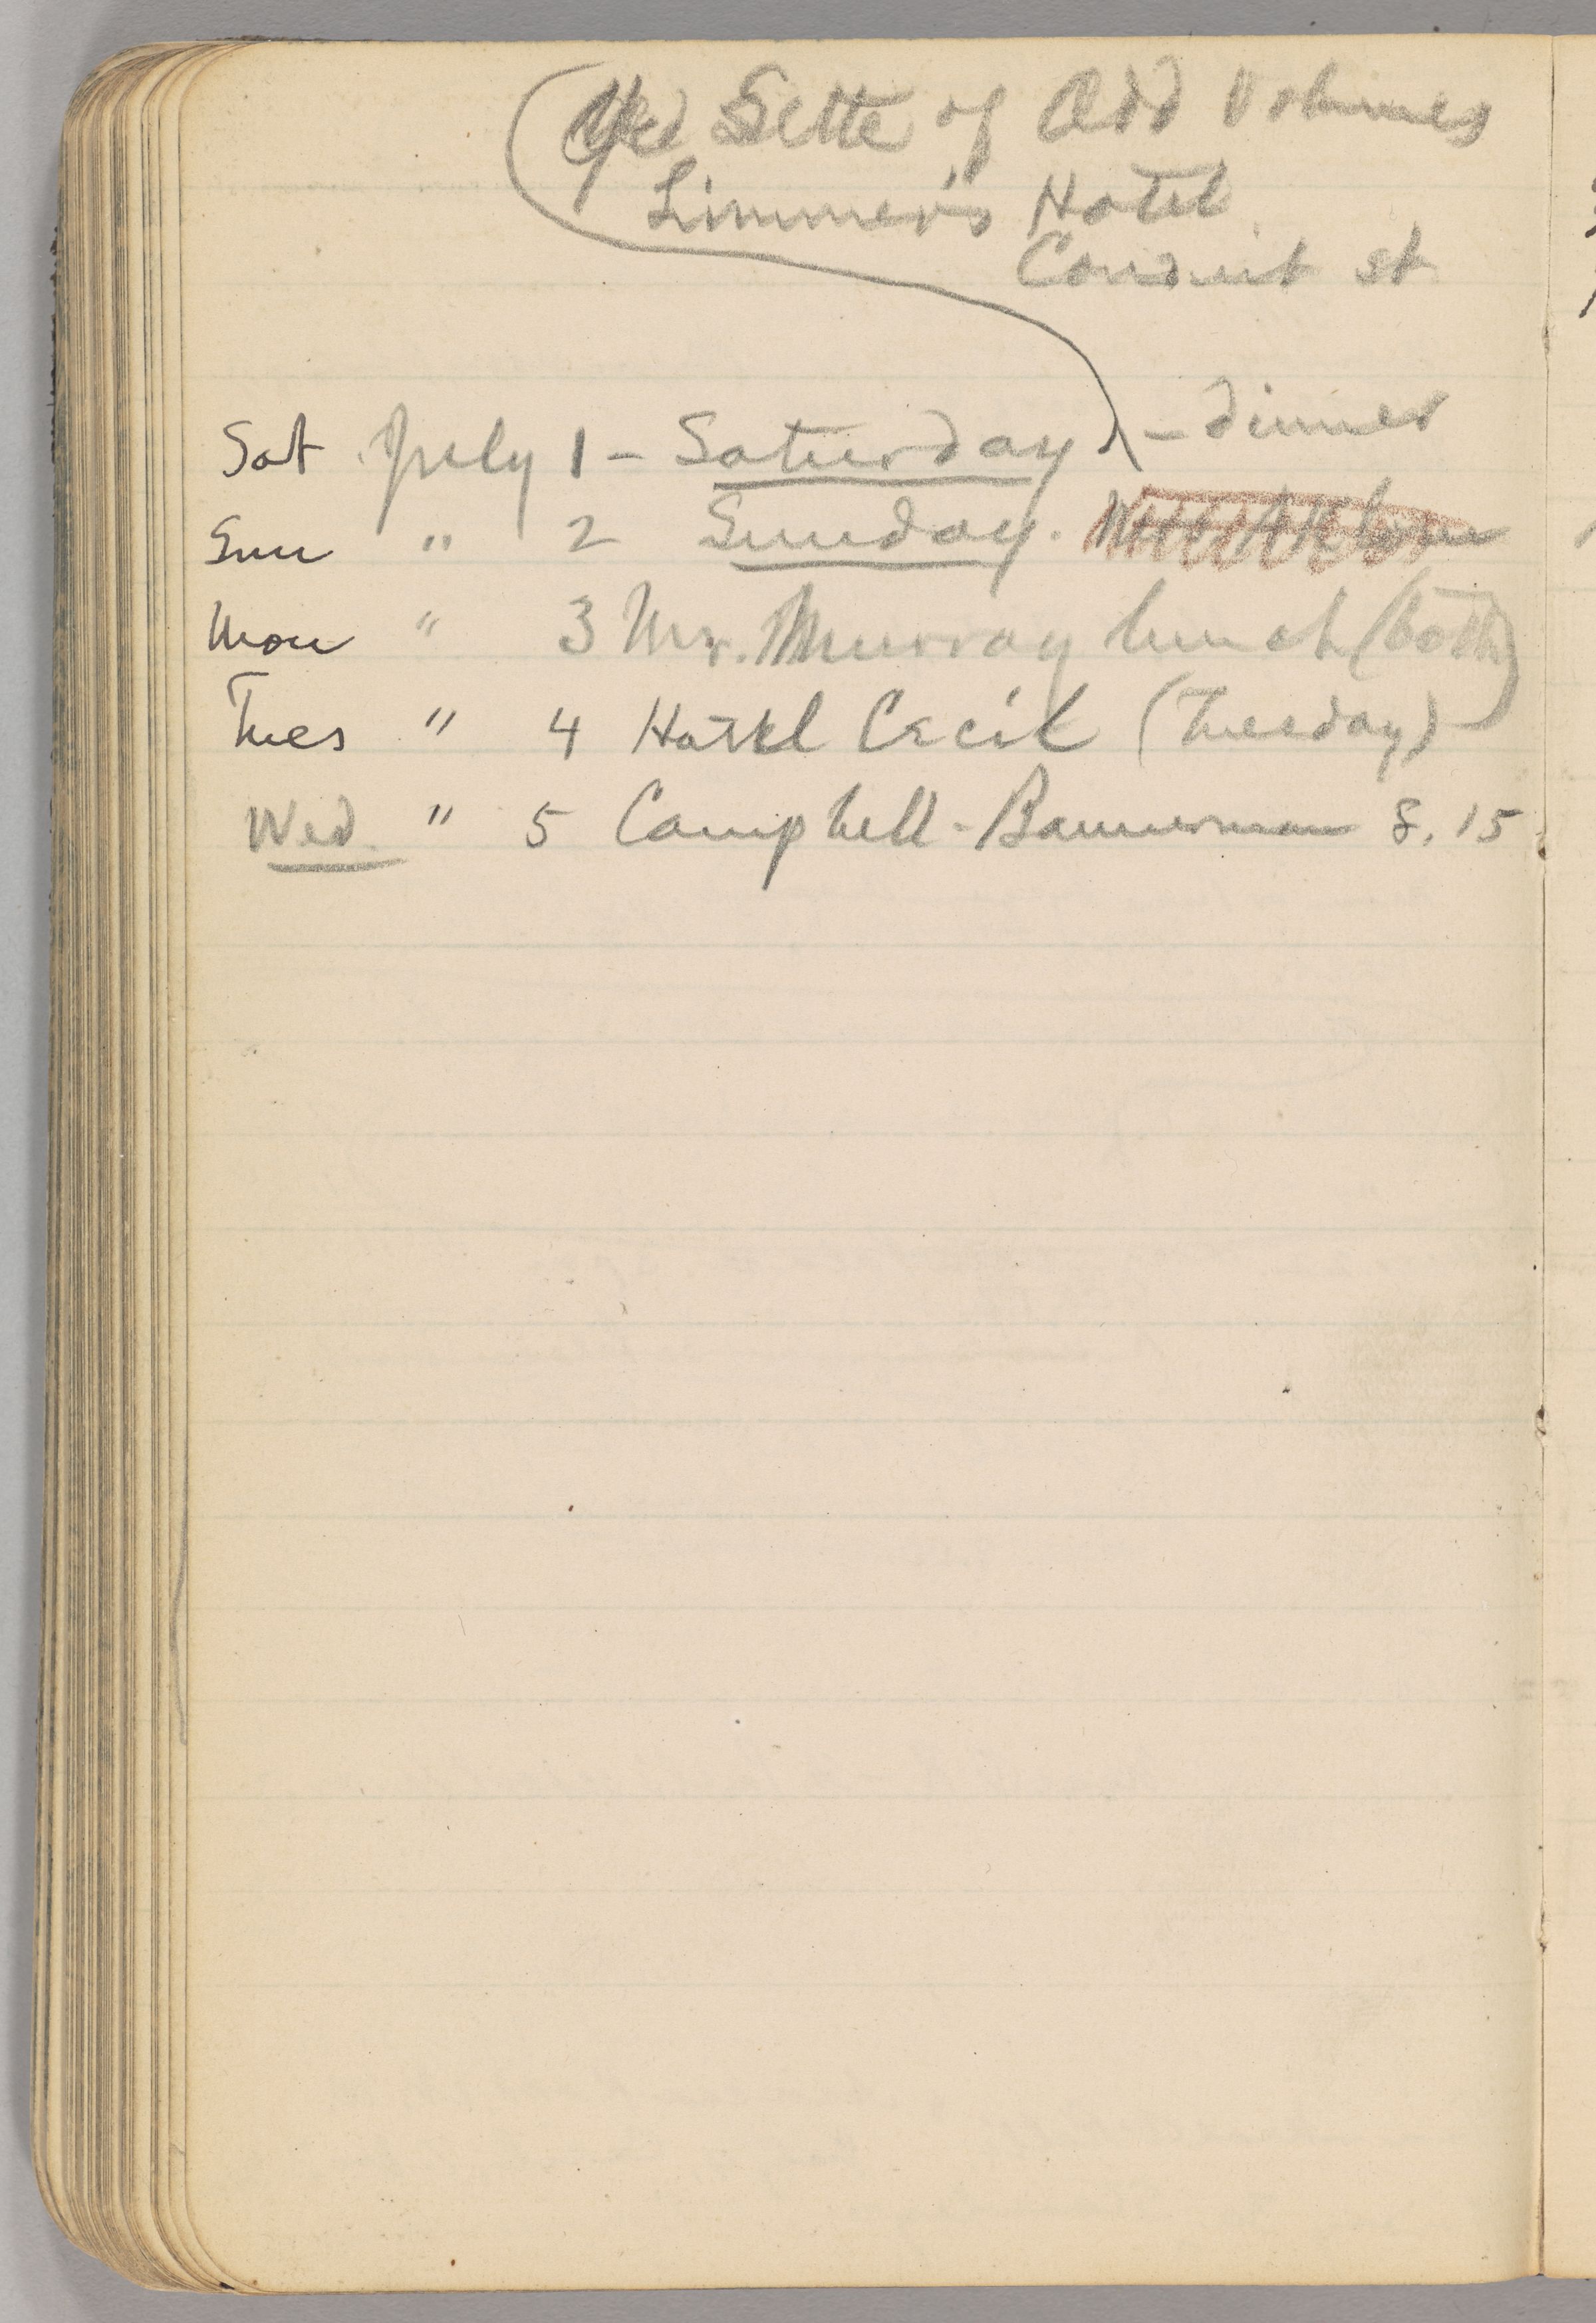 Yed Sette of Odd Volumes
Limmer's Hotel
Conduit st
Sat July 1 - Saturday - dinner
Sun " 2 Sunday.
Mon " 3 Mr. Murray lunch (both)
Tues " 4 Hotel Cecil (Tuesday)
Wed. " 5 Campbell-Bannerman 8.15